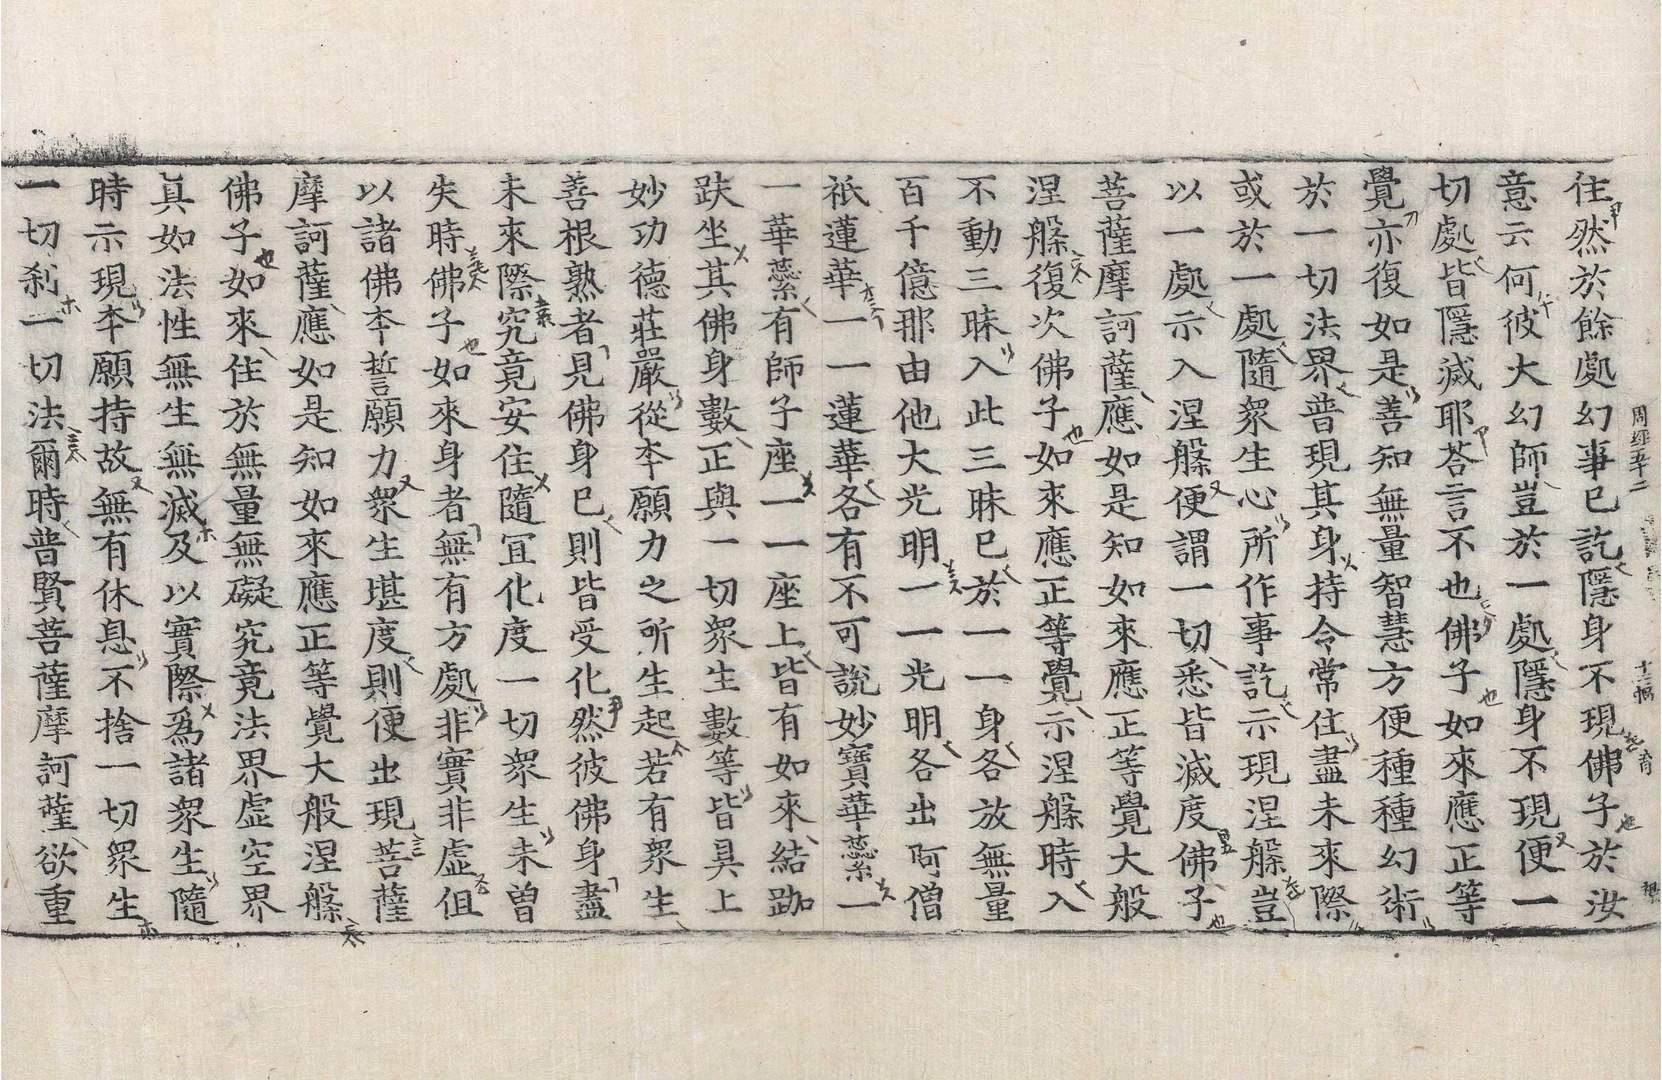 住然於餘處幻事已訖隱身不現佛子於汝
意云何彼大幻師豈於一處隱身不現便一
切處皆隱滅耶荅言不也佛子如來應正等
覺亦復如是善知無量智慧方便種種幻術
於一切法界普現其身持令常住盡未來際
或於一處隨衆生心所作事訖示現涅槃豈
以一處示入涅槃便謂一切悉皆滅度佛子
菩薩摩訶薩應如是知如來應正等覺大般
涅槃復次佛子如來應正等覺示涅槃時入
不動三昧入此三昧已於一一身各放無量
百千億那由他大光明一一光明各出阿僧
祇蓮華一一蓮華各有不可說妙寶華蘂一
一華蘂有師子座一一座上皆有如來結跏
趺坐其佛身數正與一切衆生數等皆具上
妙功德莊嚴從夲願力之所生起若有衆生
善根熟者見佛身已則皆受化然彼佛身盡
未來際究竟安住隨冝化度一切衆生未曽
失時佛子如來身者無有方處非實非虛但
以諸佛夲誓願力衆生堪度則便出現菩薩
摩訶薩應如是知如來應正等覺大般涅槃
佛子如來住於無量無礙究竟法界虛空界
真如法性無生無滅及以實際爲諸衆生隨
時示現夲願持故無有休息不捨一切衆生
一切刹一切法爾時普賢菩薩摩訶薩欲重